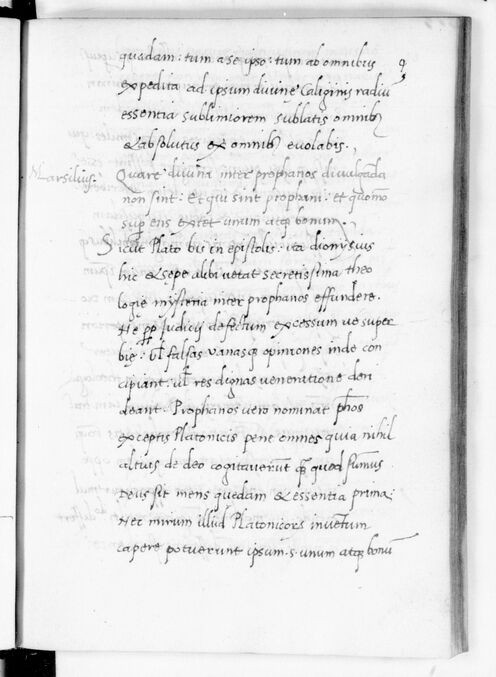 quadam: tum a se ipso: tum ab omnibus
expedita ad ipsum divinę Caliginis radiū
essentia sublimiorem sublatis omnibꝫ
& absolutus ex omnibꝫ evolabis.
Marsilius. Quare divina inter prophanos divulgāda
non sint. Et qui sint prophani. et quomō
sup ens extet unum atqꝫ bonum.
Sicut Plato bis in epistolis: ita dionysius
hic & sępe alibi vetat secretissima theo
logię mysteria inter prophanos effundere.
Ne ꝓp Judicij defectum excessum ve super
bię: Ul falsas vanasqꝫ opiniones inde con
cipiant: ul res dignas veneratione deri
deant. Prophanos vero nominat phos
exceptis Platonicis pene omnes quia nihil
altius de deo cogitaverūt qꝫ quod sūmus
Deus sit mens quedam & essentia prima:
Nec mirum illud Platonicors inuētum
capere potuerunt ipsum .s. unum atqꝫ bonū